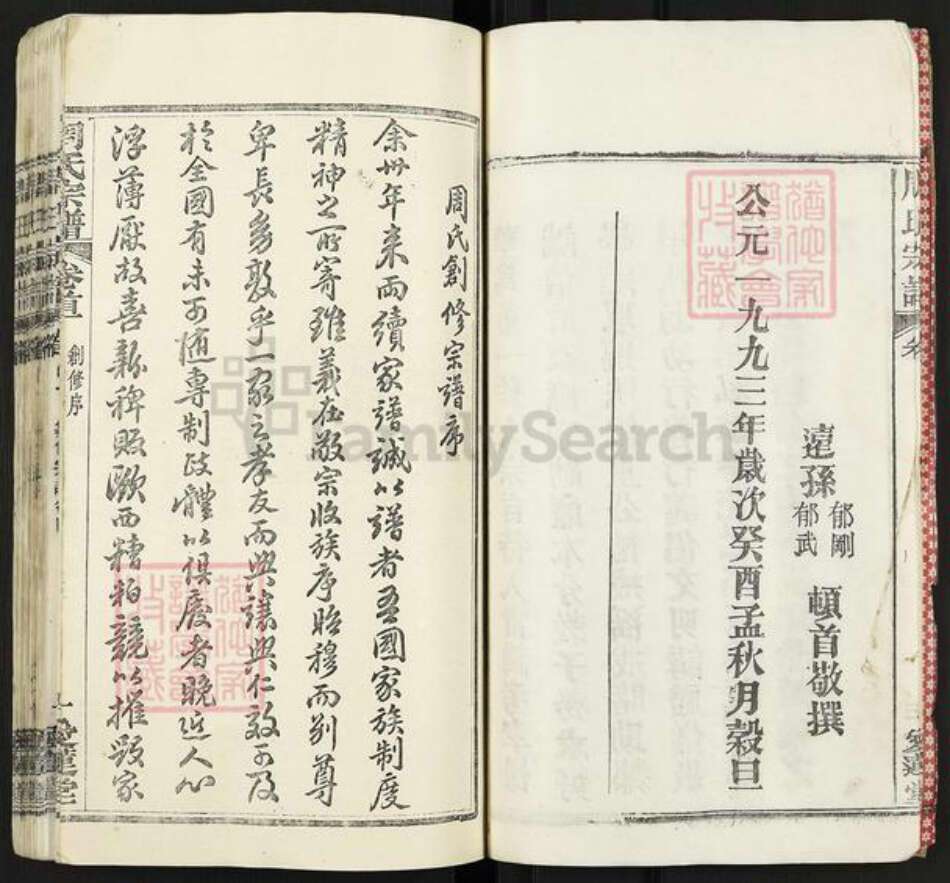 周氏宗譜
卷
愛蓮堂
遠孫
郁剛
郁武
頓首敬撰
公元一九九三年歲次癸酉孟秋月穀旦
周氏創修宗譜序
余卅年來而續家譜誠以譜者吾國家族制度
精神之所寄雖義在敬宗收族序昭穆而別尊
卑長另敦乎一家之孝友而興讓興仁效可及
於全國有未可隨專制政體以俱廢者晚近人心
浮薄厭故喜新稗販歐西糟粕競以摧毀家
周氏宗譜
卷首
創修序
一
愛蓮堂
FamilySearch
特藏